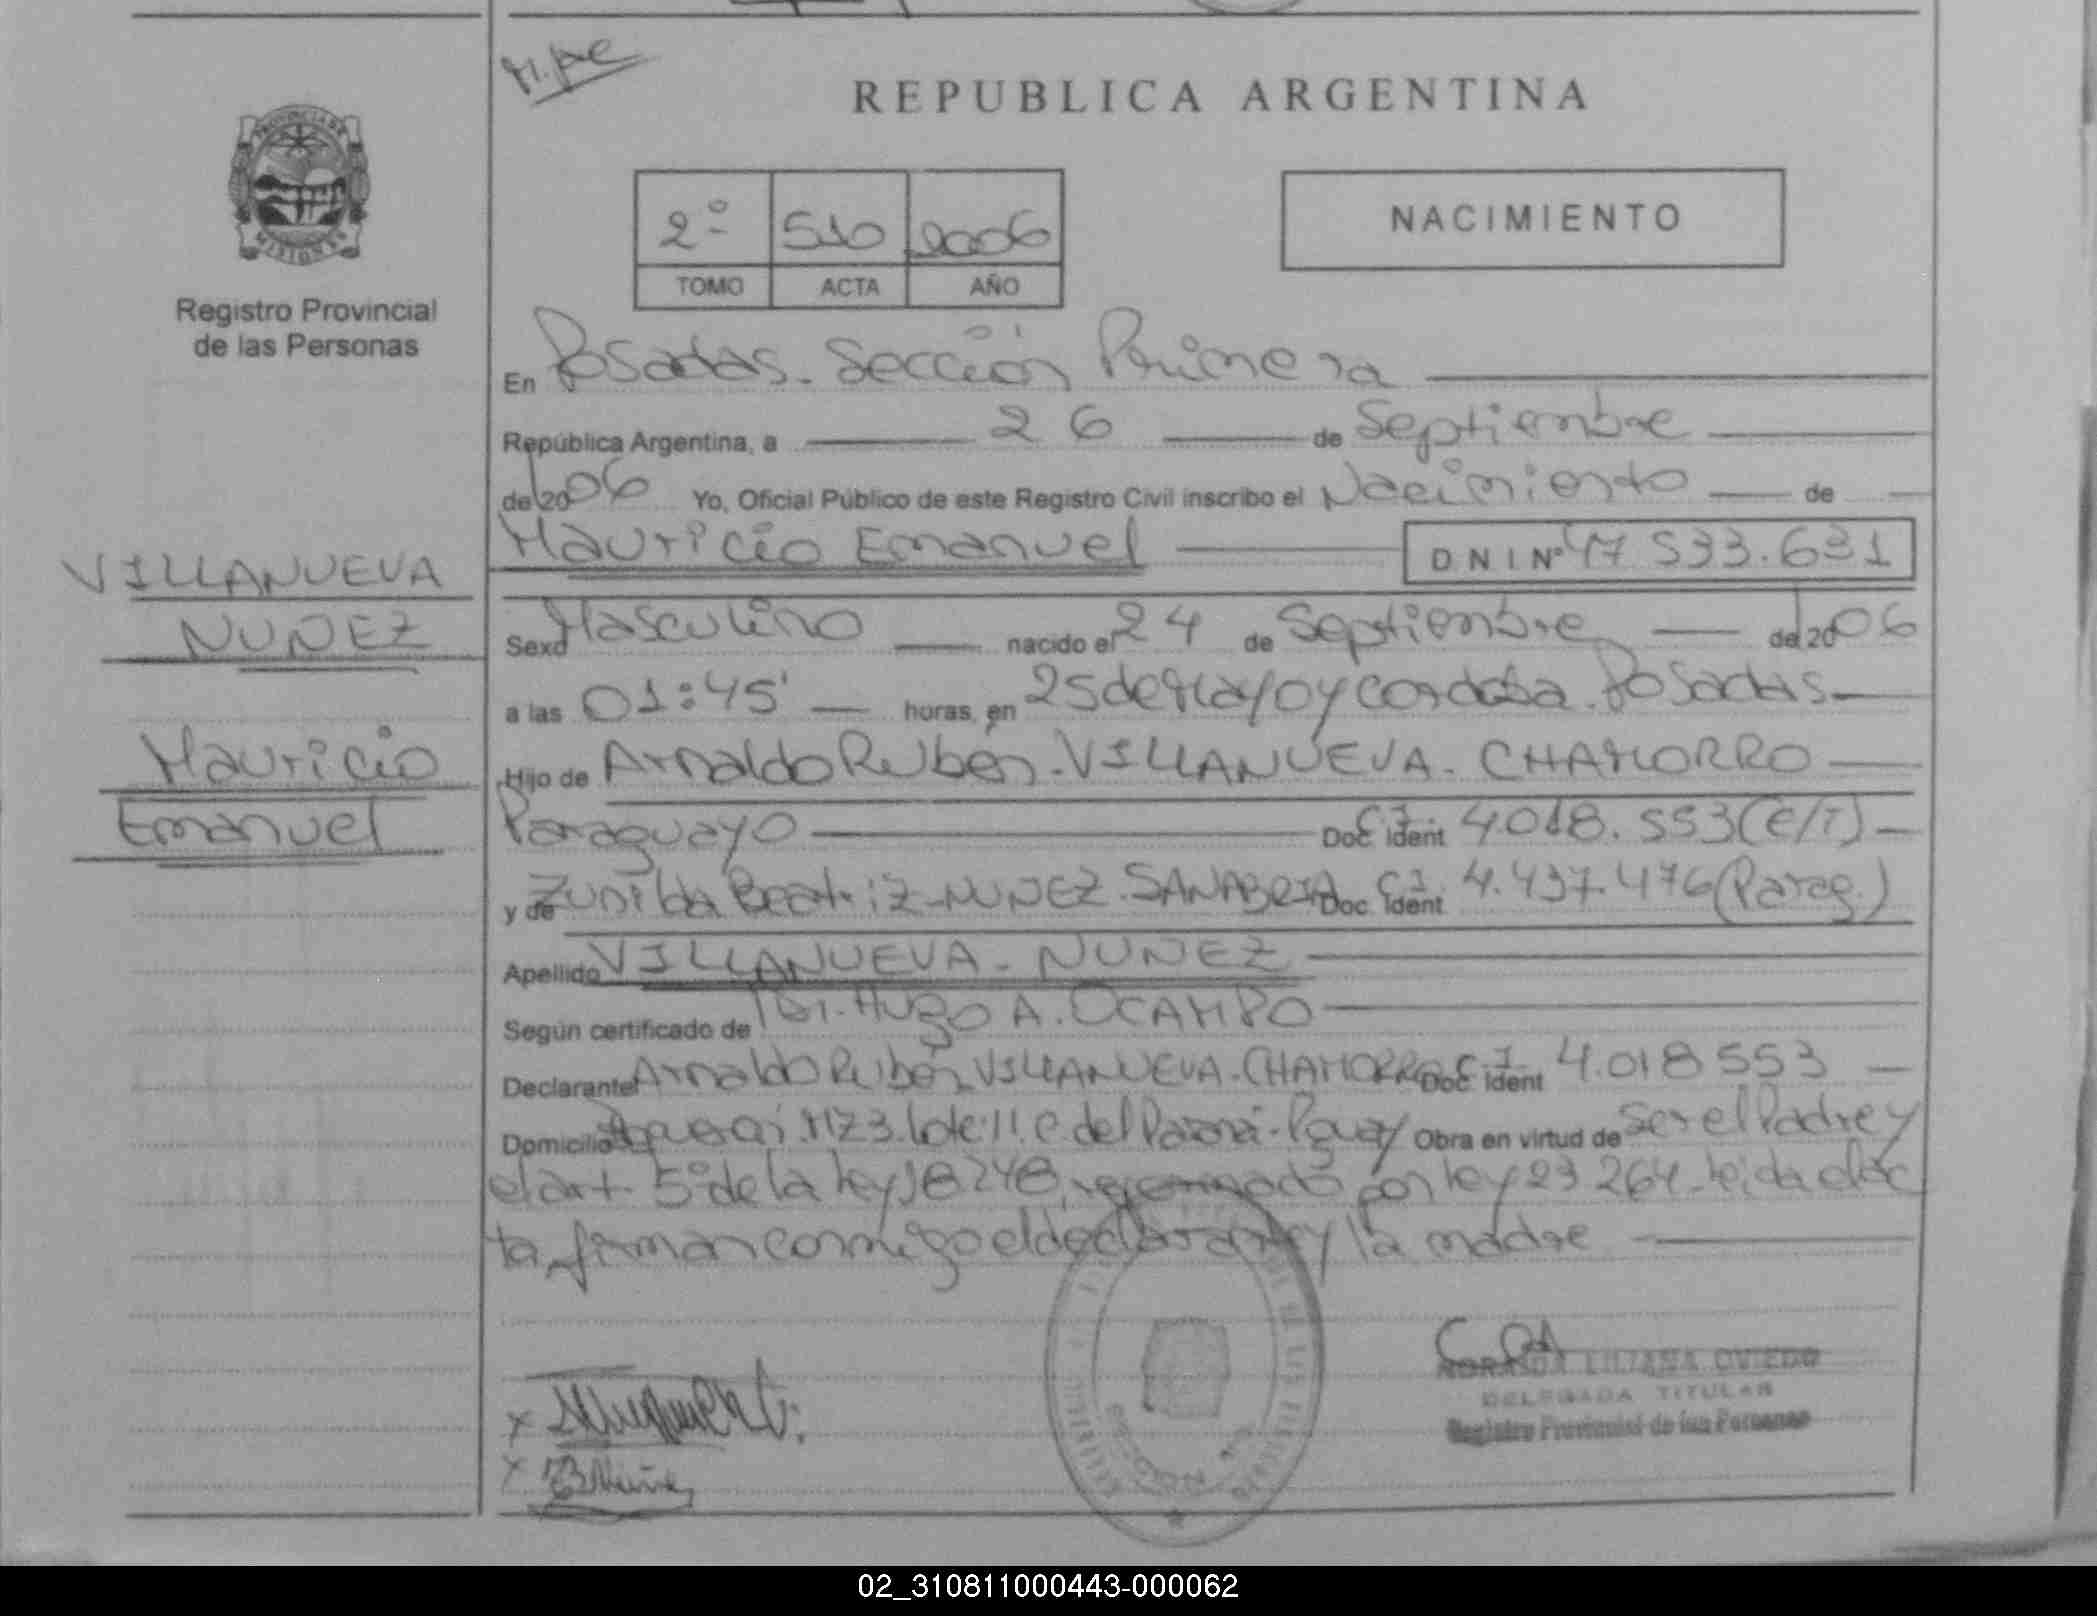 M.pe
REPUBLICA ARGENTINA
PROVINCIA DE
MISIONES
Registro Provincial
de las Personas
2º 510 2006
TOMO ACTA AÑO
NACIMIENTO
En Posadas. Sección Primera
República Argentina, a 26 de Septiembre
del 2006 Yo, Oficial Público de este Registro Civil inscribo el Nacimiento de
Mauricio Emanuel DNI Nº 47 533.631
VILLANUEVA
NUÑEZ
Mauricio
Emanuel
Sexo Masculino nacido el 24 de Septiembre del 2006
a las 01:45' horas, en 25 de Mayo y Cordoba. Posadas
Hijo de Arnaldo Rubén. VILLANUEVA. CHAMORRO
Paraguayo Doc. Ident C.I. 4.018.553 (E/T)
y de Zunilda Beatriz NUÑEZ. SANABRIA Doc. Ident C.I. 4.437.476 (Parag.)
Apellido VILLANUEVA - NUÑEZ
Según certificado de Dr. Hugo A. OCAMPO
Declarante Arnaldo Rubén VILLANUEVA. CHAMORRO Doc. Ident C.I. 4.018 553
Domicilio Mz 3. Lote 11. C. del Paraná - Pguay Obra en virtud de ser el Padre y
el art. 5º de la ley 18248, reformado por ley 23 264. Leida el ac
ta, firman conmigo el declarante y la madre
NORANDA LILIANA OVIEDO
DELEGADA TITULAR
Registro Provincial de las Personas
02_310811000443-000062